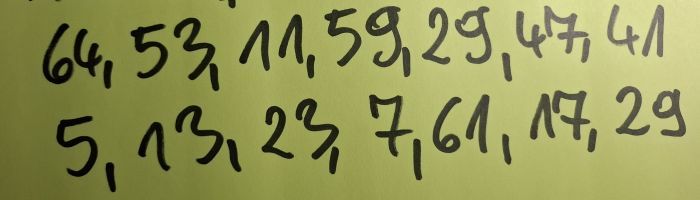 64, 53, 11, 59, 29, 47, 41
5, 13, 23, 7, 61, 17, 29